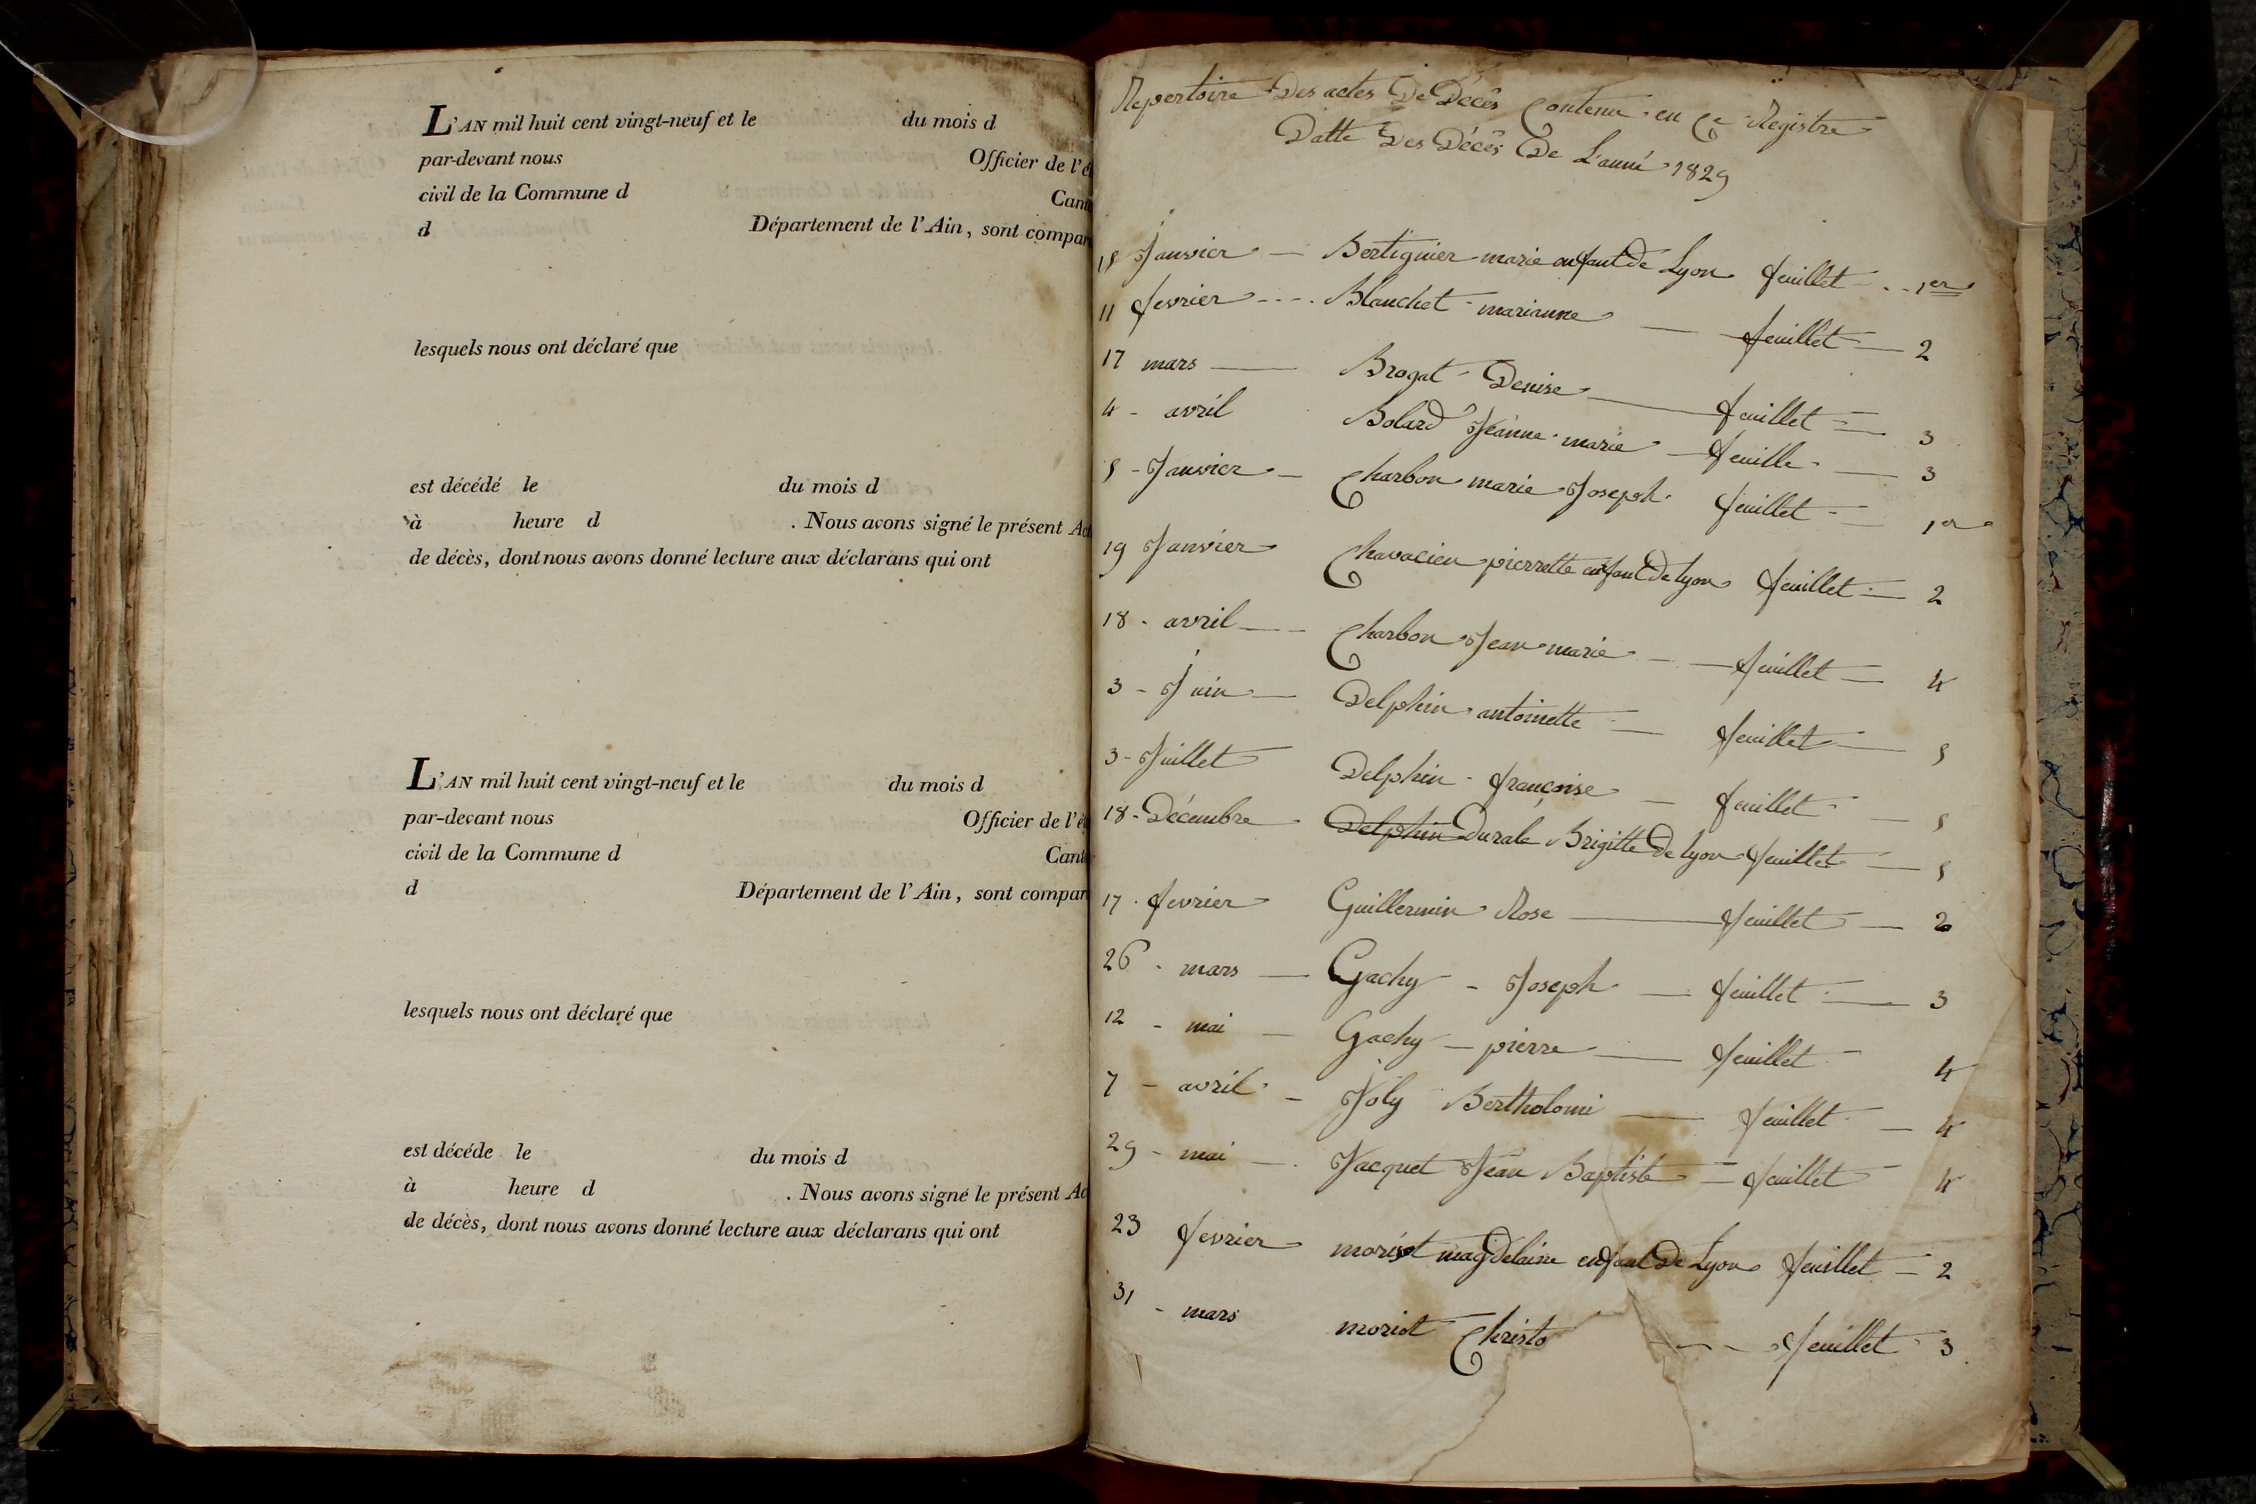 L'AN mil huit cent vingt-neuf et le du mois d
par-devant nous Officier de l'é
civil de la Commune d Cant
d Département de l'Ain, sont compar
lesquels nous ont déclaré que
est décédé le du mois d
à heure d . Nous avons signé le présent Act
de décès, dont nous avons donné lecture aux déclarans qui ont
L'AN mil huit cent vingt-neuf et le du mois d
par-devant nous Officier de l'é
civil de la Commune d Cant
d Département de l'Ain, sont compar
lesquels nous ont déclaré que
est décéde le du mois d
à heure d . Nous avons signé le présent Ac
de décès, dont nous avons donné lecture aux déclarans qui ont
Repertoire Des actes De Décês Contenu en Ce Registre
Datte Des Décês De L'anné 1829
Janvier — Bertignier marie enfant de Lyon feuillet - - 1er
11 fevrier - - - - Blanchet - marianne — feuillet — 2
17 mars — Brogat - Denise — feuillet — 3
4 - avril Bolard Jeanne marie — feuille — 3
Janvier — Charbon marie Joseph feuillet — 1er
19 Janvier Chavacieu pierrette enfant de Lyon feuillet — 2
18 - avril — Charbon Jean marie — feuillet — 4
3 - Juin — Delphin antoinette — feuillet — 5
3 - Juillet Delphin - françoise — feuillet — 5
18 - Décembre Delphin Brigitte De Lyon feuillet — 5
17 - fevrier Guillermin Rose — feuillet — 2
26 - mars — Gachy - Joseph — feuillet — 3
12 - mai — Gachy — pierre — feuillet — 4
7 - avril — Joly Bertholomi — feuillet — 4
29 - mai — Jacquet Jean Baptiste — feuillet 4
23 fevrier morisot magdelaine enfant De Lyon feuillet — 2
31 - mars moriot Christo - - - feuillet - 3